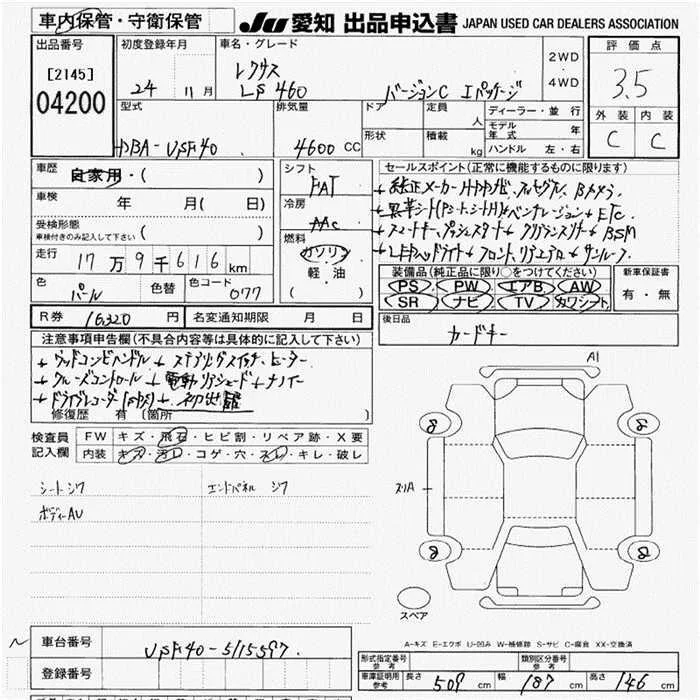 車内保管・守衛保管 JU 愛知 出品申込書 JAPAN USED CAR DEALERS ASSOCIATION
出品番号 初度登録年月 車名・グレード 2WD 評価点
[2145] 24 11月 レクサス 4WD 3.5
04200 LS 460 バージョンC Iパッケージ
型式 排気量 ドア 定員 人 ディーラー・並行 外装 内装
DBA-USF40 4600 CC 形状 積載 kg モデル年式 年 C C
ハンドル 左・右
車歴 自家用・( ) シフト FAT セールスポイント(正常に機能するものに限ります)
車検 年 月( 日) 冷房 AAC +純正メーカーHDDナビ+フルセグTV+Bカメラ
受検形態 ( ) +黒革シート(Pシート・シートH)+ベンチレーション+ETC
車検付きのみ記入して下さい 燃料 +スマートキー+プッシュスタート+クリアランスソナー+BSM
走行 17万9千616km ガソリン +LEDヘッドライト+フロント、リアエアロ+サンルーフ
軽油
( )
色 パール 色替 色コード 077 装備品(純正品に限り○をつけてください) 新車保証書
PS PW エアB AW 有・無
SR ナビ TV カワシート
R券 16320円 名変通知期限 月 日 後日品
カードキー
注意事項申告欄(不具合内容等は具体的に記入して下さい)
+ウッドコンビハンドル+ステアリングスイッチ+ヒーター
+クルーズコントロール+電動リアシェード+ナノイー
+ドライブレコーダー
修復歴 有 〔箇所 〕
検査員 FW キズ・飛石・ヒビ割・リペア跡・X要
記入欄 内装 キズ・汚レ・コゲ・穴・スレ・キレ・破レ
シートシワ エンドパネル シワ
ボディーAU
A1
8 8
スリA
8 8
スペア
A-キズ E-エクボ U-凹み W-補修跡 S-サビ C-腐食 XX-交換済
車台番号 USF40-5115597
登録番号
形式指定番号 参考 類別区分番号 参考
車庫証明用 参考 長さ 509 cm 幅 187 cm 高さ 146 cm